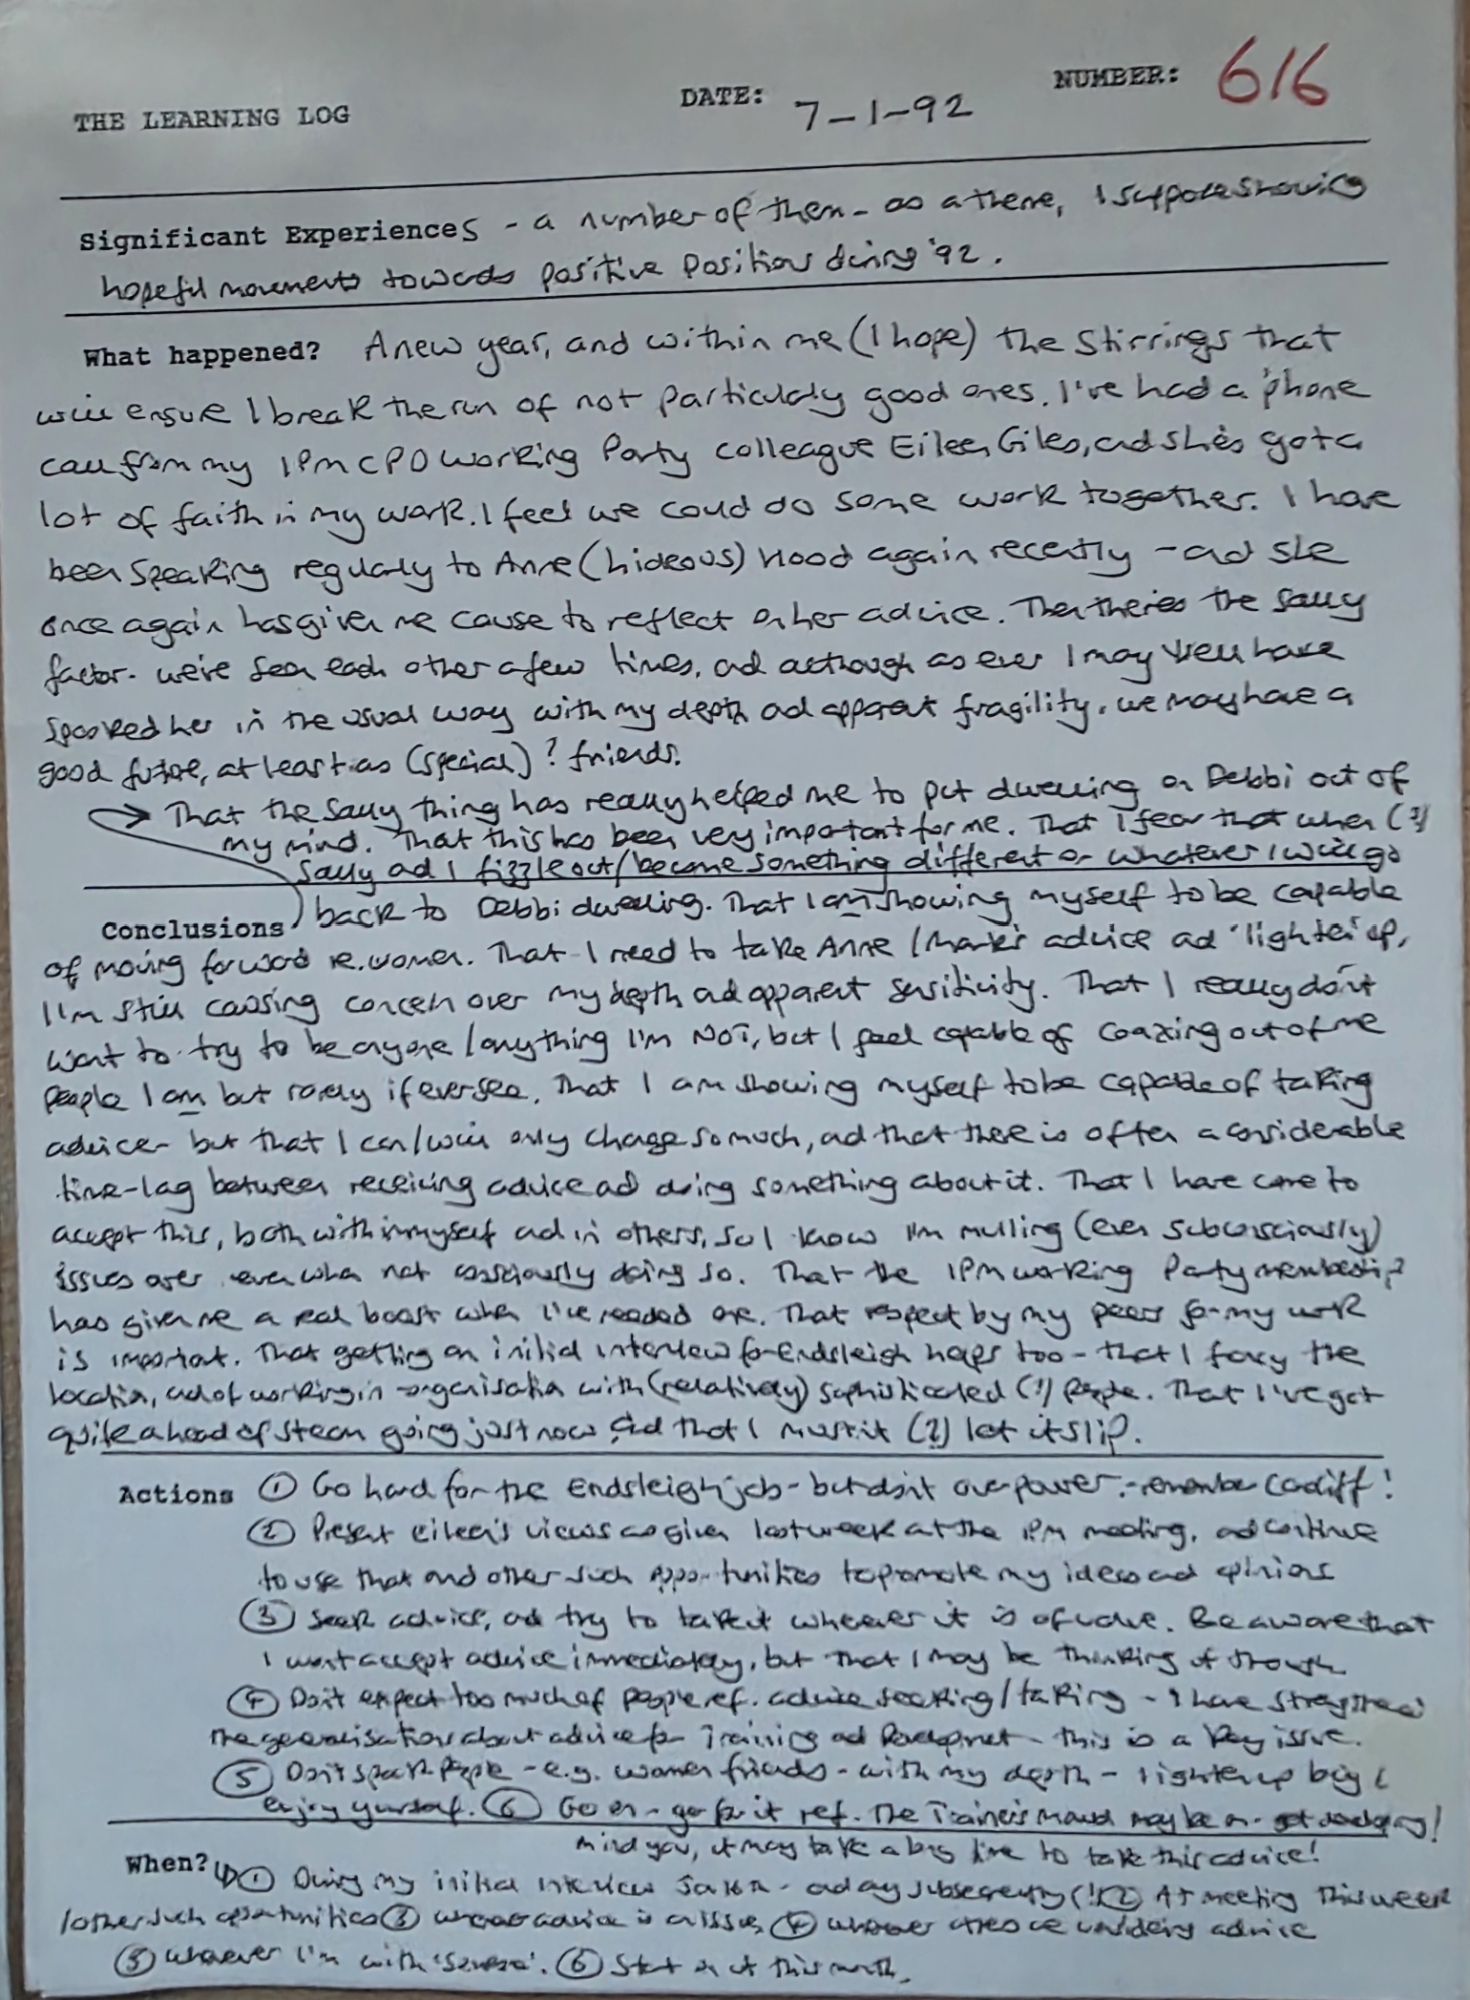 THE LEARNING LOG DATE: 7-1-92 NUMBER: 616
Significant Experiences - a number of them - as a theme, I suppose showing
hopeful movements towards positive positions during '92.
What happened? A new year, and within me (I hope) the stirrings that
will ensure I break the run of not particularly good ones. I've had a 'phone
call from my IPM CPD Working Party colleague Eileen Giles, and she's got a
lot of faith in my work. I feel we could do some work together. I have
been speaking regularly to Anne (hideous) Hood again recently - and she
once again has given me cause to reflect on her advice. Then there's the Sally
factor - we've seen each other a few times, and although as ever I may well have
spooked her in the usual way with my depth and apparent fragility, we may have a
good future, at least as (special)? friends.
That the Sally thing has really helped me to put dwelling on Debbi out of
my mind. That this has been very important for me. That I fear that when (?)
Sally and I fizzle out/become something different or whatever I will go
Conclusions back to Debbi dwelling. That I am showing myself to be capable
of moving forward re. women. That I need to take Anne/Mark's advice and 'lighten' up,
I'm still causing concern over my depth and apparent sensitivity. That I really don't
want to try to be anyone/anything I'm NOT, but I feel capable of coaxing out of me
people I am but rarely if ever see. That I am showing myself to be capable of taking
advice - but that I can/will only change so much, and that there is often a considerable
time-lag between receiving advice and doing something about it. That I have come to
accept this, both within myself and in others, so I know I'm mulling (even subconsciously)
issues over even when not consciously doing so. That the IPM working Party membership
has given me a real boost when I've needed one. That respect by my peers for my work
is important. That getting an initial interview for Endsleigh helps too - that I fancy the
location, and of working in organisation with (relatively) sophisticated (!) people. That I've got
quite a head of steam going just now and that I mustn't (?) let it slip.
Actions ① Go hard for the Endsleigh job - but don't overpower - remember Cardiff!
② Present Eileen's views as given last week at the IPM meeting, and continue
to use that and other such opportunities to promote my ideas and opinions
③ Seek advice, and try to take it wherever it is of value. Be aware that
I won't accept advice immediately, but that I may be thinking it through
④ Don't expect too much of people ref. advice seeking/taking - I have strengthened
the generalisations about advice for Training and Development - this is a key issue.
⑤ Don't spook people - e.g. women friends - with my depth - lighten up boy &
enjoy yourself. ⑥ Go on - go for it ref. The Trainer's Manual may be on - get
mind you, it may take a big time to take this advice!
When? ① During my initial interview - and any subsequently (!) ② At meeting this week
/other such opportunities ③ advice is an issue ④ advice
⑤ whenever I'm with ⑥ Start on it this month.